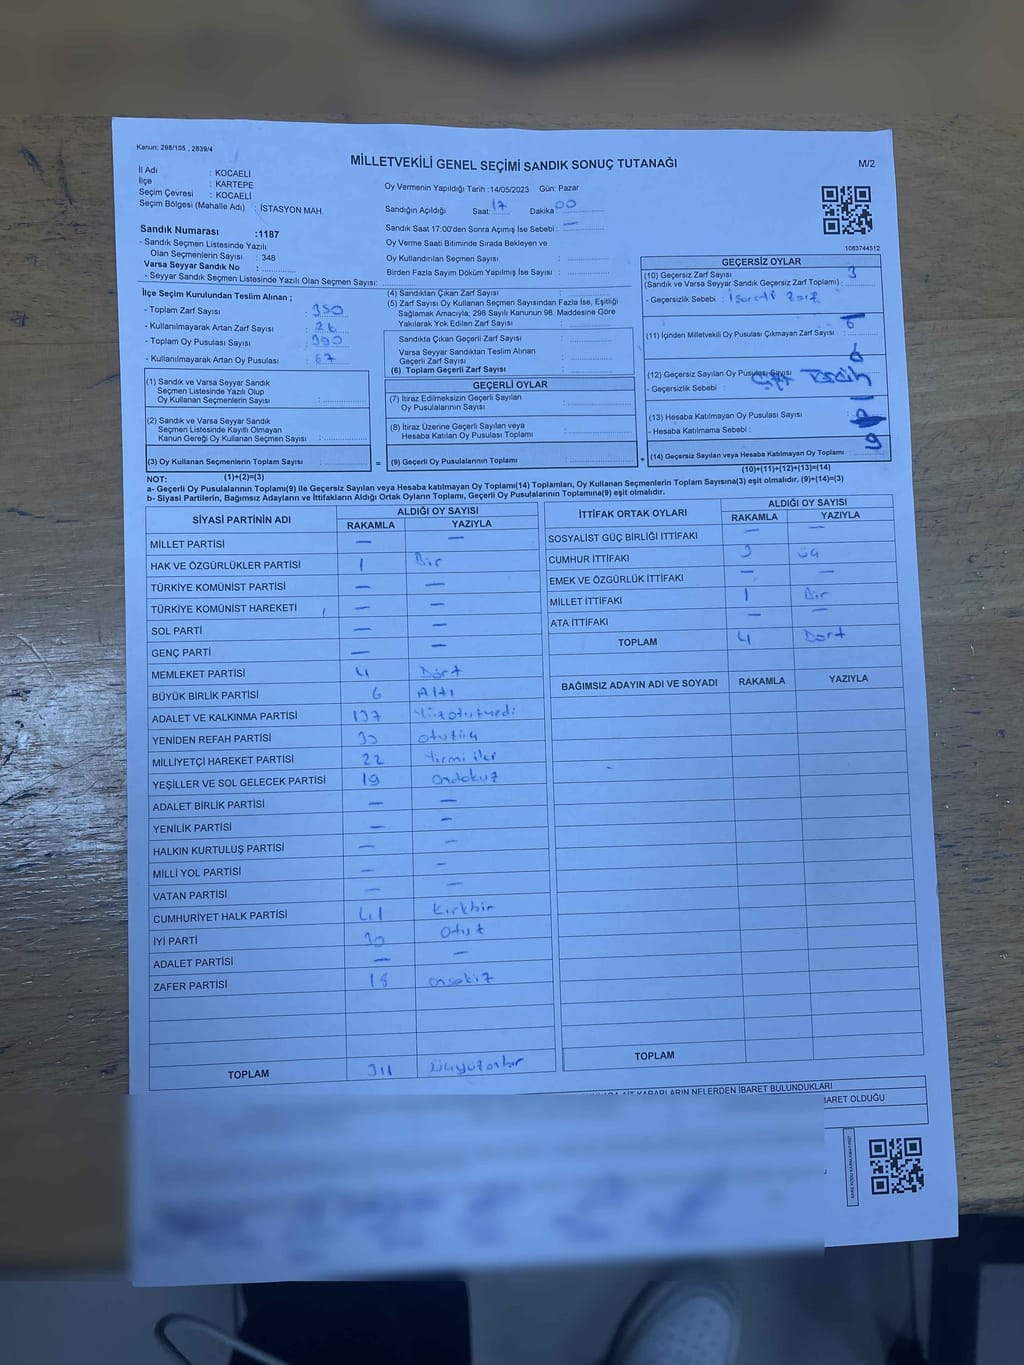 Kanun: 298/105 , 2839/4
MİLLETVEKİLİ GENEL SEÇİMİ SANDIK SONUÇ TUTANAĞI
M/2
İl Adı : KOCAELİ
İlçe : KARTEPE
Seçim Çevresi : KOCAELİ
Seçim Bölgesi (Mahalle Adı) : İSTASYON MAH.
Oy Vermenin Yapıldığı Tarih :14/05/2023 Gün: Pazar
Sandığın Açıldığı Saat: 17 Dakika 00
Sandık Saat 17:00'den Sonra Açımış İse Sebebi : —
Oy Verme Saati Bitiminde Sırada Bekleyen ve
Oy Kullandırılan Seçmen Sayısı :
Birden Fazla Sayım Döküm Yapılmış İse Sayısı :
1083744512
Sandık Numarası :1187
- Sandık Seçmen Listesinde Yazılı
Olan Seçmenlerin Sayısı : 348
Varsa Seyyar Sandık No :
- Seyyar Sandık Seçmen Listesinde Yazılı Olan Seçmen Sayısı:
İlçe Seçim Kurulundan Teslim Alınan ;
- Toplam Zarf Sayısı : 350
- Kullanılmayarak Artan Zarf Sayısı : 26
- Toplam Oy Pusulası Sayısı : 390
- Kullanılmayarak Artan Oy Pusulası : 67
(1) Sandık ve Varsa Seyyar Sandık
Seçmen Listesinde Yazılı Olup
Oy Kullanan Seçmenlerin Sayısı :
(2) Sandık ve Varsa Seyyar Sandık
Seçmen Listesinde Kayıtlı Olmayan
Kanun Gereği Oy Kullanan Seçmen Sayısı :
(3) Oy Kullanan Seçmenlerin Toplam Sayısı :
(4) Sandıktan Çıkan Zarf Sayısı :
(5) Zarf Sayısı Oy Kullanan Seçmen Sayısından Fazla İse, Eşitliği
Sağlamak Amacıyla; 298 Sayılı Kanunun 98. Maddesine Göre
Yakılarak Yok Edilen Zarf Sayısı :
Sandıkta Çıkan Geçerli Zarf Sayısı :
Varsa Seyyar Sandıktan Teslim Alınan
Geçerli Zarf Sayısı :
(6) Toplam Geçerli Zarf Sayısı :
GEÇERLİ OYLAR
(7) İtiraz Edilmeksizin Geçerli Sayılan
Oy Pusulalarının Sayısı :
(8) İtiraz Üzerine Geçerli Sayılan veya
Hesaba Katılan Oy Pusulası Toplamı :
= (9) Geçerli Oy Pusulalarının Toplamı :
GEÇERSİZ OYLAR
(10) Geçersiz Zarf Sayısı 3
(Sandık ve Varsa Seyyar Sandık Geçersiz Zarf Toplamı) :
- Geçersizlik Sebebi : İşaretli Zarf
(11) İçinden Milletvekili Oy Pusulası Çıkmayan Zarf Sayısı :
(12) Geçersiz Sayılan Oy Pusulası Sayısı 6
- Geçersizlik Sebebi : Çift Tercih
(13) Hesaba Katılmayan Oy Pusulası Sayısı
- Hesaba Katılmama Sebebi :
+ (14) Geçersiz Sayılan veya Hesaba Katılmayan Oy Toplamı : 9
NOT: (1)+(2)=(3)
(10)+(11)+(12)+(13)=(14)
a- Geçerli Oy Pusulalarının Toplamı(9) ile Geçersiz Sayılan veya Hesaba katılmayan Oy Toplamı(14) Toplamları, Oy Kullanan Seçmenlerin Toplam Sayısına(3) eşit olmalıdır. (9)+(14)=(3)
b- Siyasi Partilerin, Bağımsız Adayların ve İttifakların Aldığı Ortak Oyların Toplamı, Geçerli Oy Pusulalarının Toplamına(9) eşit olmalıdır.
SİYASİ PARTİNİN ADI ALDIĞI OY SAYISI
RAKAMLA YAZIYLA
MİLLET PARTİSİ — —
HAK VE ÖZGÜRLÜKLER PARTİSİ 1 Bir
TÜRKİYE KOMÜNİST PARTİSİ — —
TÜRKİYE KOMÜNİST HAREKETİ — —
SOL PARTİ — —
GENÇ PARTİ — —
MEMLEKET PARTİSİ 4 Dört
BÜYÜK BİRLİK PARTİSİ 6 Altı
ADALET VE KALKINMA PARTİSİ 137 Yüzotuzyedi
YENİDEN REFAH PARTİSİ 33 otuzüç
MİLLİYETÇİ HAREKET PARTİSİ 22 Yirmi iki
YEŞİLLER VE SOL GELECEK PARTİSİ 19 ondokuz
ADALET BİRLİK PARTİSİ — —
YENİLİK PARTİSİ — —
HALKIN KURTULUŞ PARTİSİ — —
MİLLİ YOL PARTİSİ — —
VATAN PARTİSİ — —
CUMHURİYET HALK PARTİSİ 41 Kırkbir
İYİ PARTİ 30 Otuz
ADALET PARTİSİ — —
ZAFER PARTİSİ 18 onsekiz
TOPLAM 311 üçyüzonbir
İTTİFAK ORTAK OYLARI ALDIĞI OY SAYISI
RAKAMLA YAZIYLA
SOSYALİST GÜÇ BİRLİĞİ İTTİFAKI — —
CUMHUR İTTİFAKI 3 üç
EMEK VE ÖZGÜRLÜK İTTİFAKI — —
MİLLET İTTİFAKI 1 Bir
ATA İTTİFAKI — —
TOPLAM 4 Dört
BAĞIMSIZ ADAYIN ADI VE SOYADI RAKAMLA YAZIYLA
TOPLAM
KARARLARIN NELERDEN İBARET BULUNDUKLARI
İBARET OLDUĞU